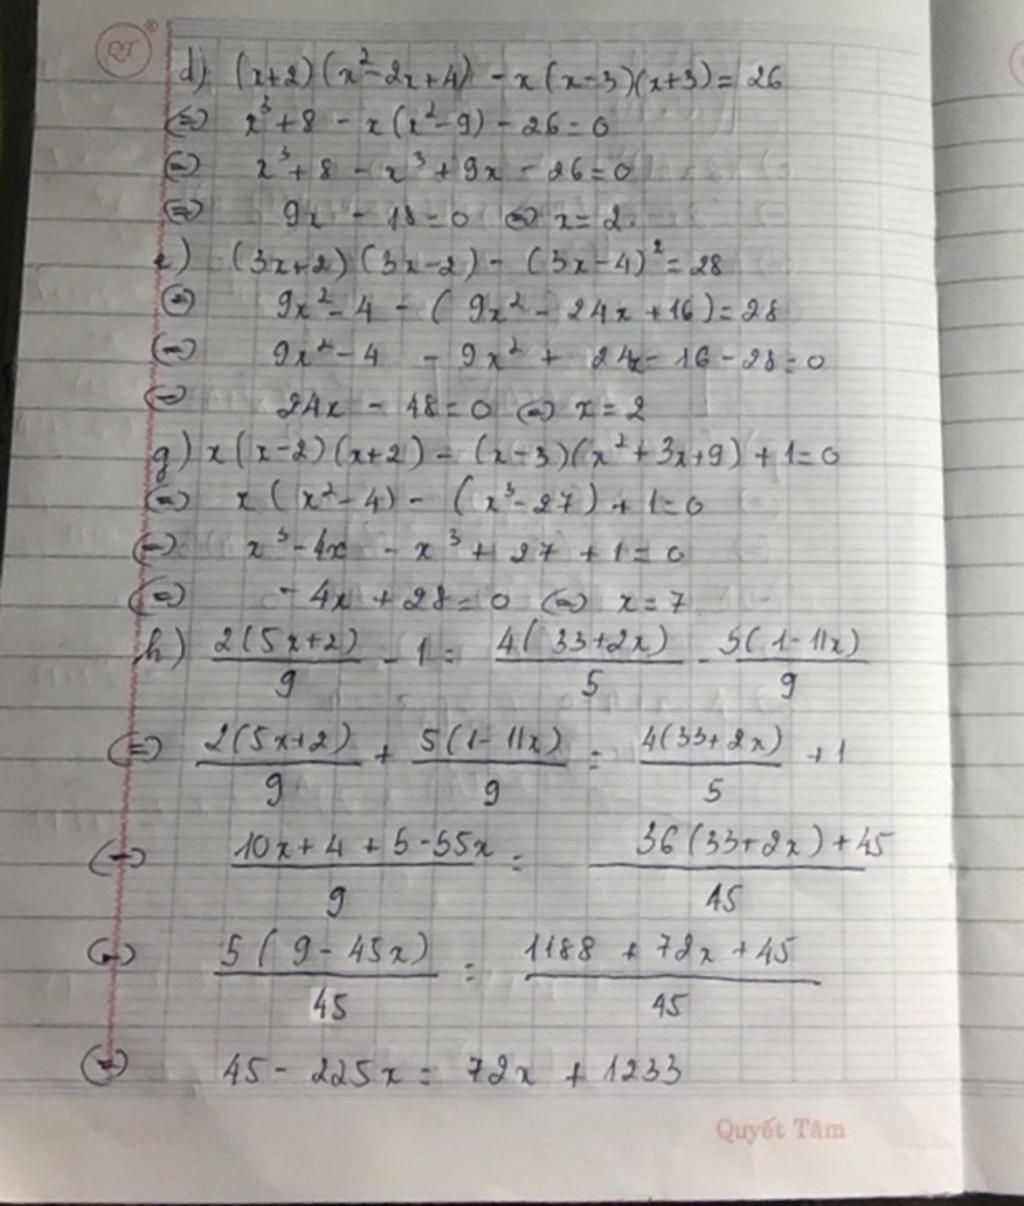 QT ®
d) (x+2)(x²-2x+4) - x(x-3)(x+3) = 26
⇔ x³+8 - x(x²-9) - 26 = 0
⇔ x³+8 - x³+9x - 26 = 0
⇔ 9x - 18 = 0 ⇔ x = 2.
e) (3x+2)(3x-2) - (3x-4)² = 28
⇔ 9x²-4 - (9x² - 24x + 16) = 28
⇔ 9x²-4 - 9x² + 24x - 16 - 28 = 0
⇔ 24x - 48 = 0 ⇔ x = 2
g) x(x-2)(x+2) - (x-3)(x²+3x+9) + 1 = 0
⇔ x(x²-4) - (x³-27) + 1 = 0
⇔ x³-4x - x³ + 27 + 1 = 0
⇔ -4x + 28 = 0 ⇔ x = 7
h) 2(5x+2)/9 - 1 = 4(33+2x)/5 - 5(1-11x)/9
⇔ 2(5x+2)/9 + 5(1-11x)/9 = 4(33+2x)/5 + 1
⇔ (10x+4+5-55x)/9 = (36(33+2x)+45)/45
⇔ 5(9-45x)/45 = (1188+72x+45)/45
⇔ 45 - 225x = 72x + 1233
Quyết Tâm